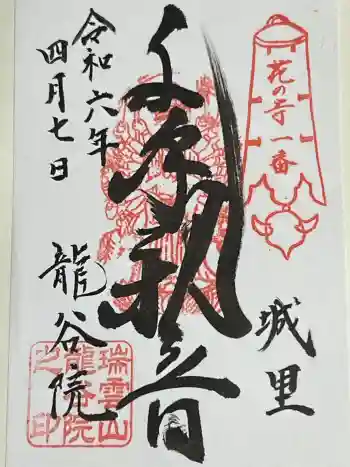 花の寺一番
城里
千手観音
令和六年
四月七日
龍谷院
瑞雲山
龍谷院
之印